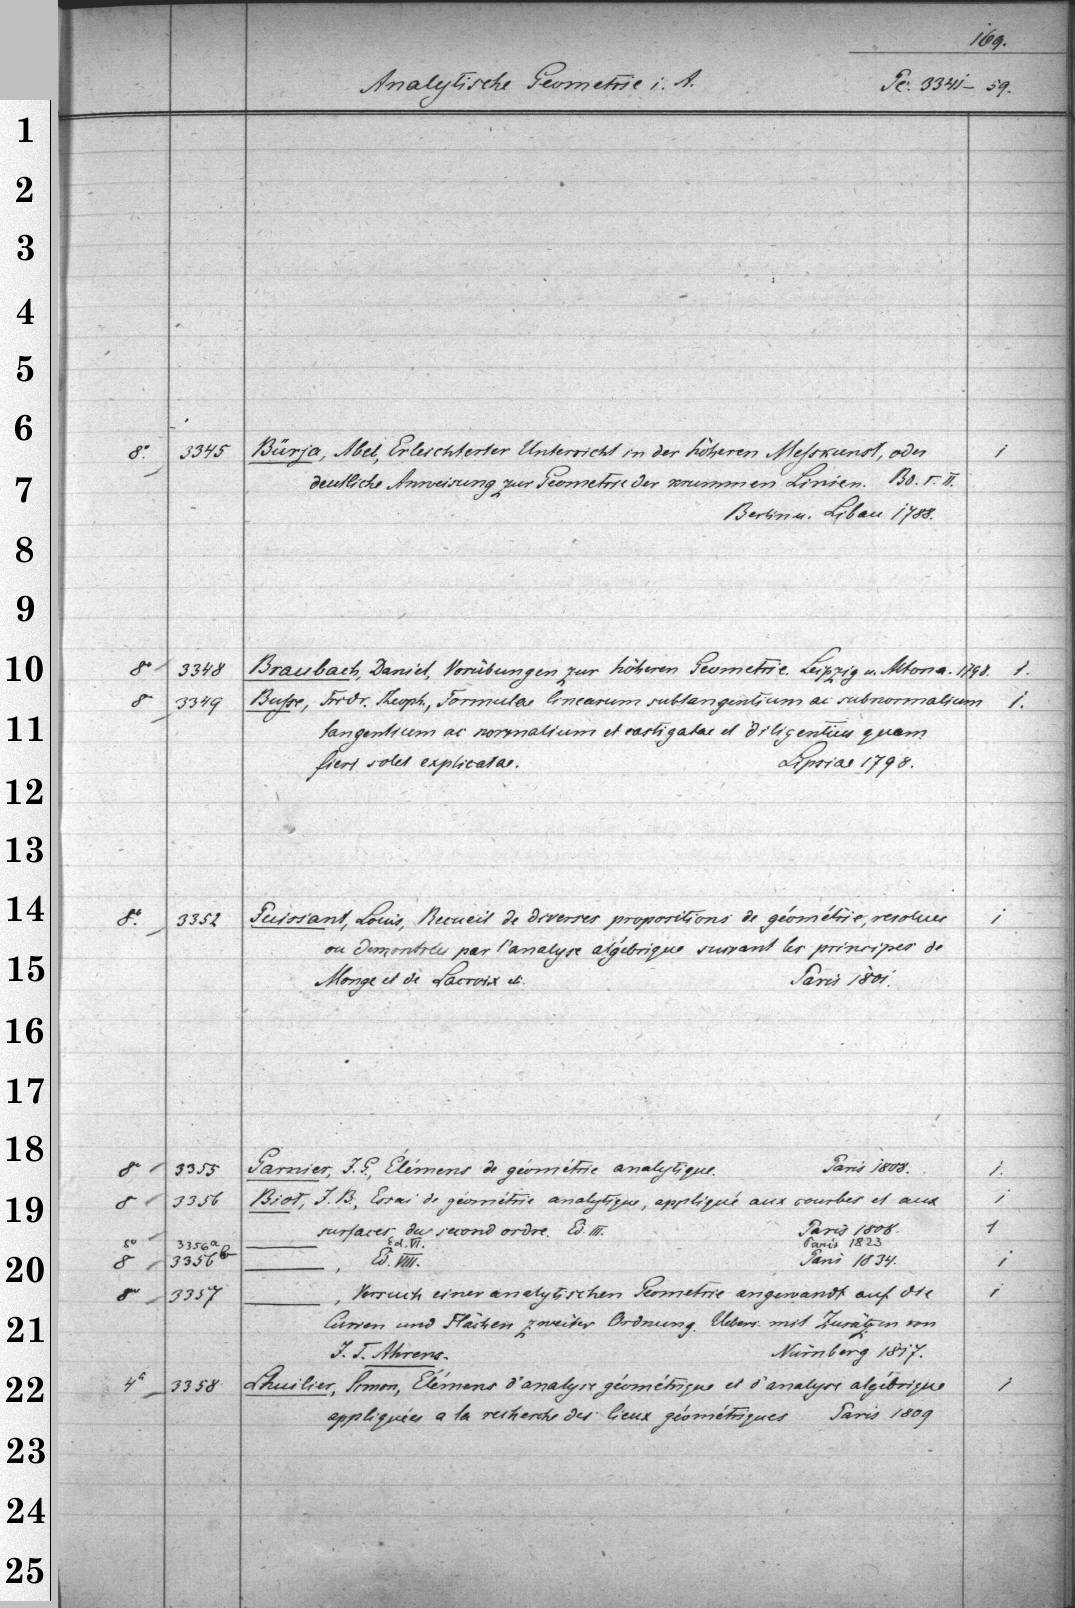 169.
Analytische Geometrie i. A. Pc. 3341 – 59.
1
2
3
4
5
6
8°. 3345 Bürja, Abel, Erleichterter Unterricht in der höheren Messkunst, oder 1
7 deutliche Anweisung zur Geometrie der krummen Linien. Bd. I. II.
Berlin u. Libau 1788.
8
9
10 8° 3348 Braubach, Daniel, Vorübungen zur höheren Geometrie. Leipzig u. Altona. 1798. 1.
8° 3349 Busse, Frdr. Theoph., Formulae linearum subtangentium ac subnormalium 1.
11 tangentium ac normalium et castigatae et diligentius quam
fieri solet explicatae. Lipsiae 1798.
12
13
14 8°. 3352 Puissant, Louis, Recueil de diverses propositions de géométrie, resolues 1
ou demontrées par l'analyse algébrique suivant les principes de
15 Monge et de Lacroix Paris 1801.
16
17
18
8° 3355 Garnier, J. G., Élémens de géométrie analytique. Paris 1808. 1.
19 8 3356 Biot, J. B., Essai de géométrie analytique, appliqué aux courbes et aux 1
surfaces du second ordre. Ed. III. Paris 1808 1
8° 3356a Ed. VI. Paris 1823
20 8 3356b , Ed. VIII. Paris 1834. 1
8° 3357 , Versuch einer analytischen Geometrie angewandt auf die 1
21 Curven und Flächen zweiter Ordnung. Uebers. mit Zusätzen von
J. T. Ahrens. Nürnberg 1817.
22 4° 3358 Lhuilier, Simon, Élémens d'analyse géométrique et d'analyse algébrique 1
appliquées a la recherche des lieux géométriques Paris 1809
23
24
25